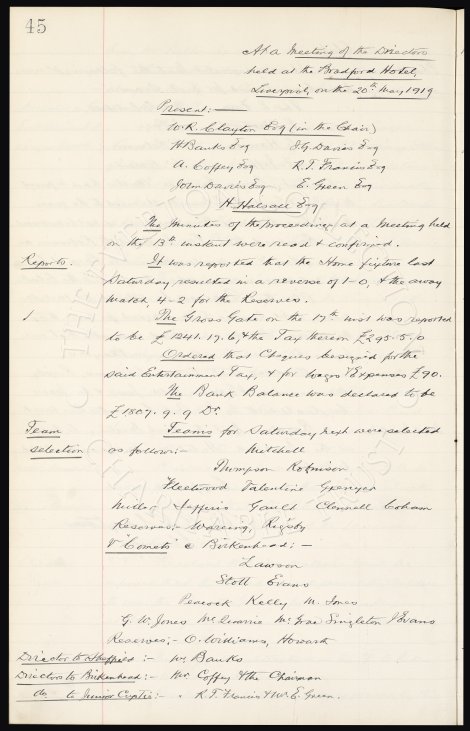 45
At a Meeting of the Directors
held at the Bradford Hotel,
Liverpool, on the 20th May 1919
Present:-
W.R. Clayton Esq (in the Chair)
H Banks Esq J.G. Davies Esq
A. Coffey Esq R.T. Francis Esq
John Davies Esq E. Green Esq
H. Halsall Esq
The Minutes of the proceedings at a Meeting held
on the 13th instant were read & confirmed.
Reports. It was reported that the Home fixture last
Saturday resulted in a reverse of 1-0, & the away
match, 4-2 for the Reserves.
The Gross Gate on the 17th inst was reported
to be £1241.17.6, & the Tax thereon £295.5.0
Ordered that Cheques be signed for the
said Entertainment Tax, & for Wages & Expenses £90.
The Bank Balance was declared to be
£1807.9.9 Dr.
Team Teams for Saturday next were selected
selection as follow:- Mitchell
Thompson Robinson
Fleetwood Valentine Grenyer
Miller Jefferis Gault Clennell
Reserves:- Wareing, Rigsby
V "Comets" @ Birkenhead:-
Lawson
Stott Evans
Peacock Kelly M. Jones
G.W. Jones Singleton J Evans
Reserves:- O. Williams, Howarth
Director to Sheffield:- Mr Banks
Directors to Birkenhead:- Mr Coffey & the Chairman
do to Junior Cuptie:- R.T. Francis & Mr E. Green.